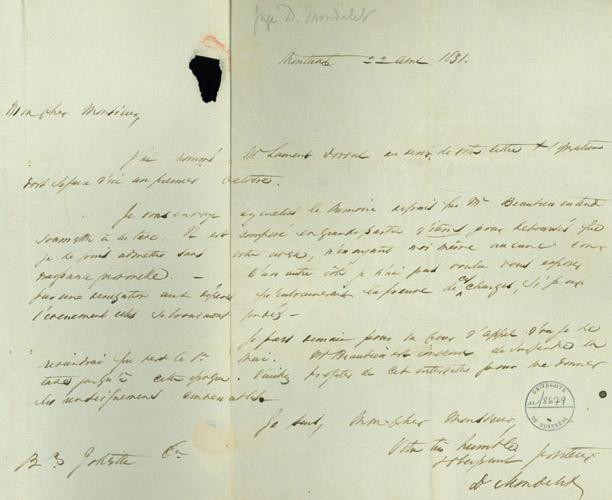 Juge D. Mondelet
Montreal 22 avril 1831.
Mon cher Monsieur,
J'ai nommé Mr Laurent au désir de votre lettre & l'opération
doit se faire d'ici au premier Octobre.
Je vous envoye le Mémoire Mr Beaubien entend
soumettre à la taxe. Il est composé en grande partie d'items pour déboursés que
je ne puis admettre sans votre aveu, n'en ayant moi même aucune
personnelle. — D'un autre côté je n'ai pas voulu vous exposer
par une dénégation aux dépens qu'entrainerait la preuve de ces charges, si
l'événement
Je pars demain pour la Cour d'appel d'où je ne
reviendrai que vers le 1r mai. Mr Beaubien est convenu de suspendre la
taxe jusqu'à cette époque. Veuillez profiter de cet intervalle pour me donner
les renseignemens convenables.
Je suis, Mon cher Monsieur,
Votre très humble
& obéissant serviteur
D Mondelet
B Joliette Er
UNIVERSITÉ
DE MONTRÉAL
8679